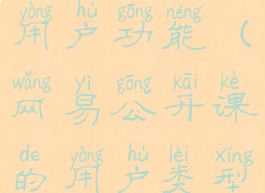 yòng hù gōng néng
用户功能（
wǎng yì gōng kāi kè
网易公开课
de yòng hù lèi xíng
的用户类型